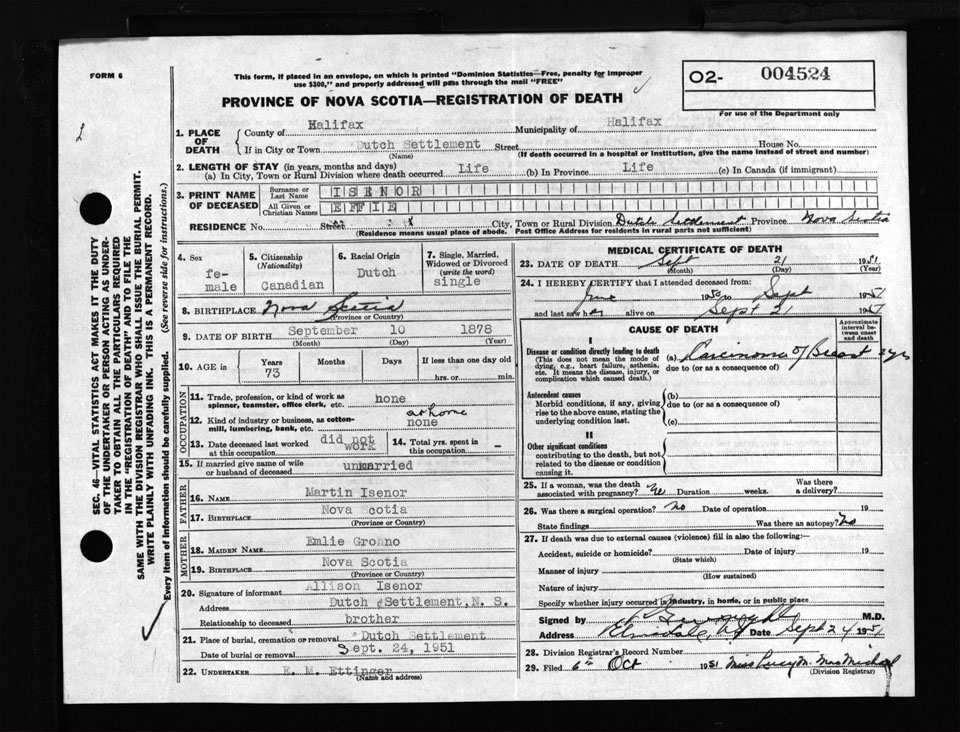 FORM 6
This form, if placed in an envelope, on which is printed "Dominion Statistics—Free, penalty for improper
use $300," and properly addressed will pass through the mail "FREE"
O2- 004524
For use of the Department only
PROVINCE OF NOVA SCOTIA—REGISTRATION OF DEATH
SEC. 46—VITAL STATISTICS ACT MAKES IT THE DUTY
OF THE UNDERTAKER OR PERSON ACTING AS UNDER-
TAKER TO OBTAIN ALL THE PARTICULARS REQUIRED
IN THE "REGISTRATION OF DEATH" AND TO FILE THE
SAME WITH THE DIVISION REGISTRAR WHO SHALL ISSUE THE BURIAL PERMIT.
WRITE PLAINLY WITH UNFADING INK. THIS IS A PERMANENT RECORD.
Every item of information should be carefully supplied. (See reverse side for instructions.)
1. PLACE OF DEATH
County of Halifax Municipality of Halifax
If in City or Town Dutch Settlement Street House No.
(Name) (If death occurred in a hospital or institution, give the name instead of street and number)
2. LENGTH OF STAY (in years, months and days)
(a) In City, Town or Rural Division where death occurred Life (b) In Province Life (c) In Canada (if immigrant)
3. PRINT NAME OF DECEASED
Surname or Last Name ISENOR
All Given or Christian Names EFFIE
RESIDENCE No. Street City, Town or Rural Division Dutch Settlement Province Nova Scotia
(Residence means usual place of abode. Post Office Address for residents in rural parts not sufficient)
4. Sex
fe-
male
5. Citizenship
(Nationality)
Canadian
6. Racial Origin
Dutch
7. Single, Married,
Widowed or Divorced
(write the word)
single
8. BIRTHPLACE Nova Scotia
(Province or Country)
9. DATE OF BIRTH September 10 1878
(Month) (Day) (Year)
10. AGE in Years Months Days If less than one day old
73 hrs. or min.
OCCUPATION
11. Trade, profession, or kind of work as
spinner, teamster, office clerk, etc. none
at home
12. Kind of industry or business, as cotton-
mill, lumbering, bank, etc. none
13. Date deceased last worked
at this occupation did not work
14. Total yrs. spent in
this occupation -
15. If married give name of wife
or husband of deceased unmarried
FATHER
16. NAME Martin Isenor
17. BIRTHPLACE Nova Scotia
(Province or Country)
MOTHER
18. MAIDEN NAME Emlie Grohno
19. BIRTHPLACE Nova Scotia
(Province or Country)
20. Signature of informant Allison Isenor
Address Dutch Settlement, N. S.
Relationship to deceased brother
21. Place of burial, cremation or removal Dutch Settlement
Date of burial or removal Sept. 24, 1951
22. UNDERTAKER E. M. Ettinger
(Name and address)
MEDICAL CERTIFICATE OF DEATH
23. DATE OF DEATH Sept 21 1951
(Month) (Day) (Year)
24. I HEREBY CERTIFY that I attended deceased from
June 1950 to Sept 1951
and last saw her alive on Sept 21 1951
CAUSE OF DEATH
Approximate
interval be-
tween onset
and death
I
Disease or condition directly leading to death
(This does not mean the mode of
dying, e.g., heart failure, asthenia,
etc. It means the disease, injury, or
complication which caused death.)
(a) Carcinoma of Breast 2 yrs
due to (or as a consequence of)
Antecedent causes
Morbid conditions, if any, giving
rise to the above cause, stating the
underlying condition last.
(b)
due to (or as a consequence of)
(c)
II
Other significant conditions
contributing to the death, but not
related to the disease or condition
causing it.
25. If a woman, was the death
associated with pregnancy? No Duration weeks. Was there
a delivery?
26. Was there a surgical operation? no Date of operation 19
State findings Was there an autopsy? No
27. If death was due to external causes (violence) fill in also the following:—
Accident, suicide or homicide? Date of injury 19
(State which)
Manner of injury
(How sustained)
Nature of injury
Specify whether injury occurred in industry, in home, or in public place
Signed by M.D.
Address Elmsdale, NS Date Sept 24 1951
28. Division Registrar's Record Number
29. Filed 6th Oct 1951 Miss Lucy M. MacMichael
(Division Registrar)